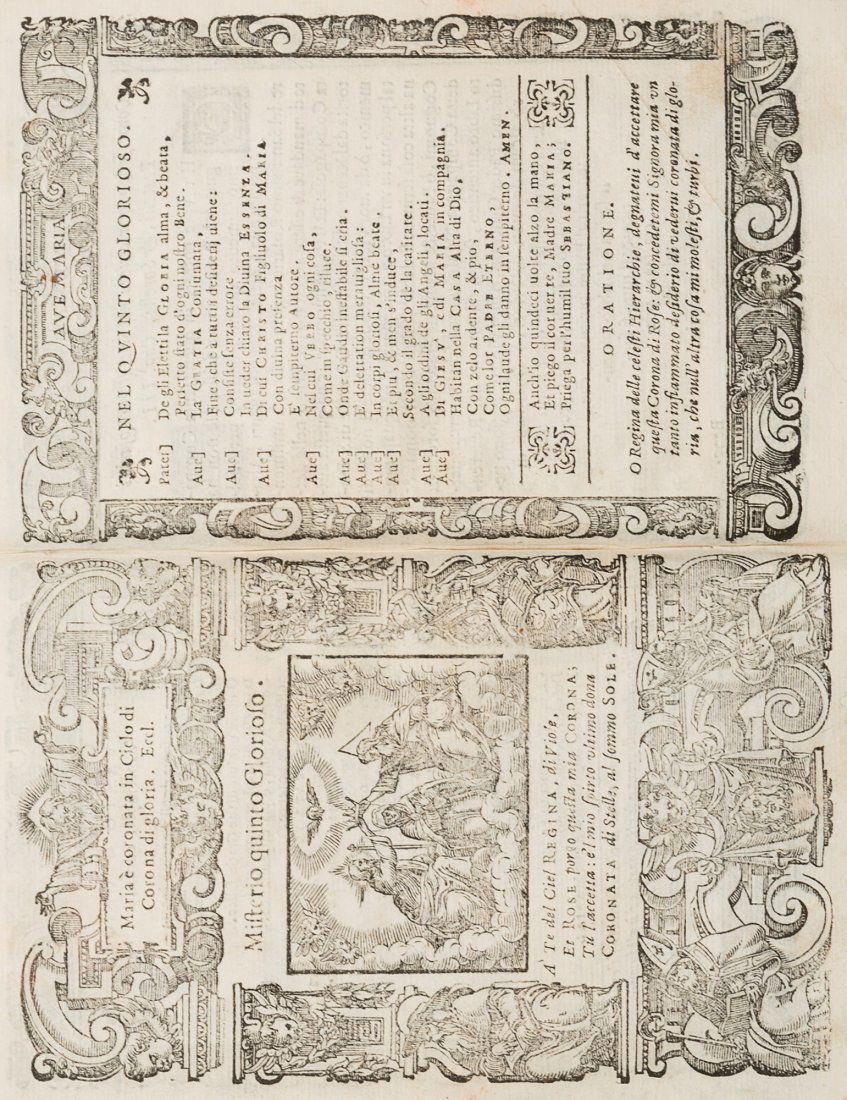 Maria è coronata in Cielo di
Corona di gloria. Eccl.
Misterio quinto Glorioso.
A' Te del Ciel REGINA, di Viole,
Et ROSE porgo questa mia CORONA;
Tù l'accetta: e'l mio spirto ultimo dona
CORONATA di Stelle, al sommo SOLE.
AVE MARIA
NEL QVINTO GLORIOSO.
Pater] De gli Eletti la GLORIA alma, & beata,
Perfetto stato d'ogni nostro Bene.
Aue] La GRATIA Consumata,
Fine, che a tutti i desiderij uiene:
Aue] Consiste senza errore
In ueder chiaro la Diuina ESSENZA.
Aue] Di cui CHRISTO Figliuolo di MARIA
Con diuina presenza
E' sempiterno Autore.
Aue] Nel cui VERBO ogni cosa,
Come in specchio, riluce.
Aue] Onde Gaudio ineffabile si cria.
Aue] E' delettation merauigliosa:
Aue] In corpi gloriosi, Alme beate.
Aue] E più, & men s'induce,
Secondo il grado de la caritate.
Aue] A gli ordini de gli Angeli, locati.
Aue] Di GIESV', e di MARIA in compagnia.
Habitan nella CASA Alta di Dio,
Con zelo ardente, & pio,
Come lor PADRE ETERNO,
Ogni laude gli danno in sempiterno. AMEN.
Anch'io quindeci uolte alzo la mano,
Et piego il cor uerte, Madre MARIA;
Priega per l'humil tuo SEBASTIANO.
ORATIONE.
O Regina delle celesti Hierarchie, degnateui d'accettare
questa Corona di Rose: & concederemi Signora mia vn
tanto infiammato desiderio di vederui coronata di glo-
ria, che null'altra cosa mi molesti, & turbi.